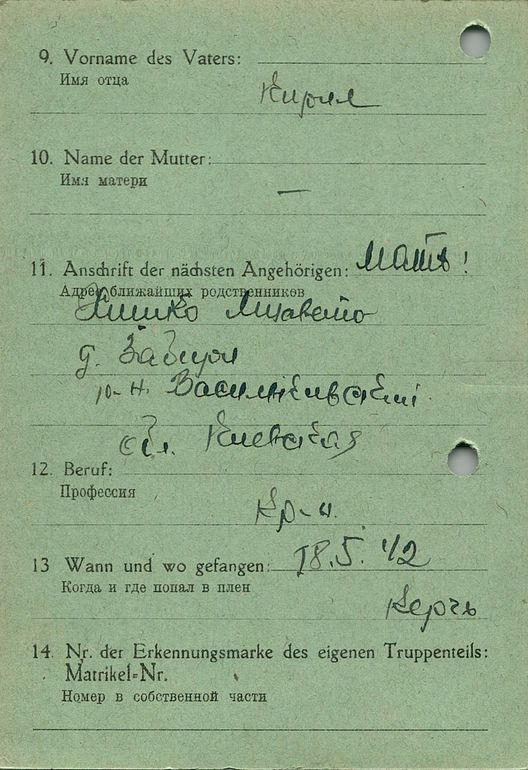 9. Vorname des Vaters:
Имя отца
Кирил
10. Name der Mutter:
Имя матери
—
11. Anschrift der nächsten Angehörigen: Мать!
Адрес ближайших родственников
Лизавета
д.
р-н. Васильковский
обл. Киевская
12. Beruf:
Профессия
Кр-н.
13 Wann und wo gefangen: 18.5.42
Когда и где попал в плен
Керчь
14. Nr. der Erkennungsmarke des eigenen Truppenteils:
Matrikel-Nr.
Номер в собственной части